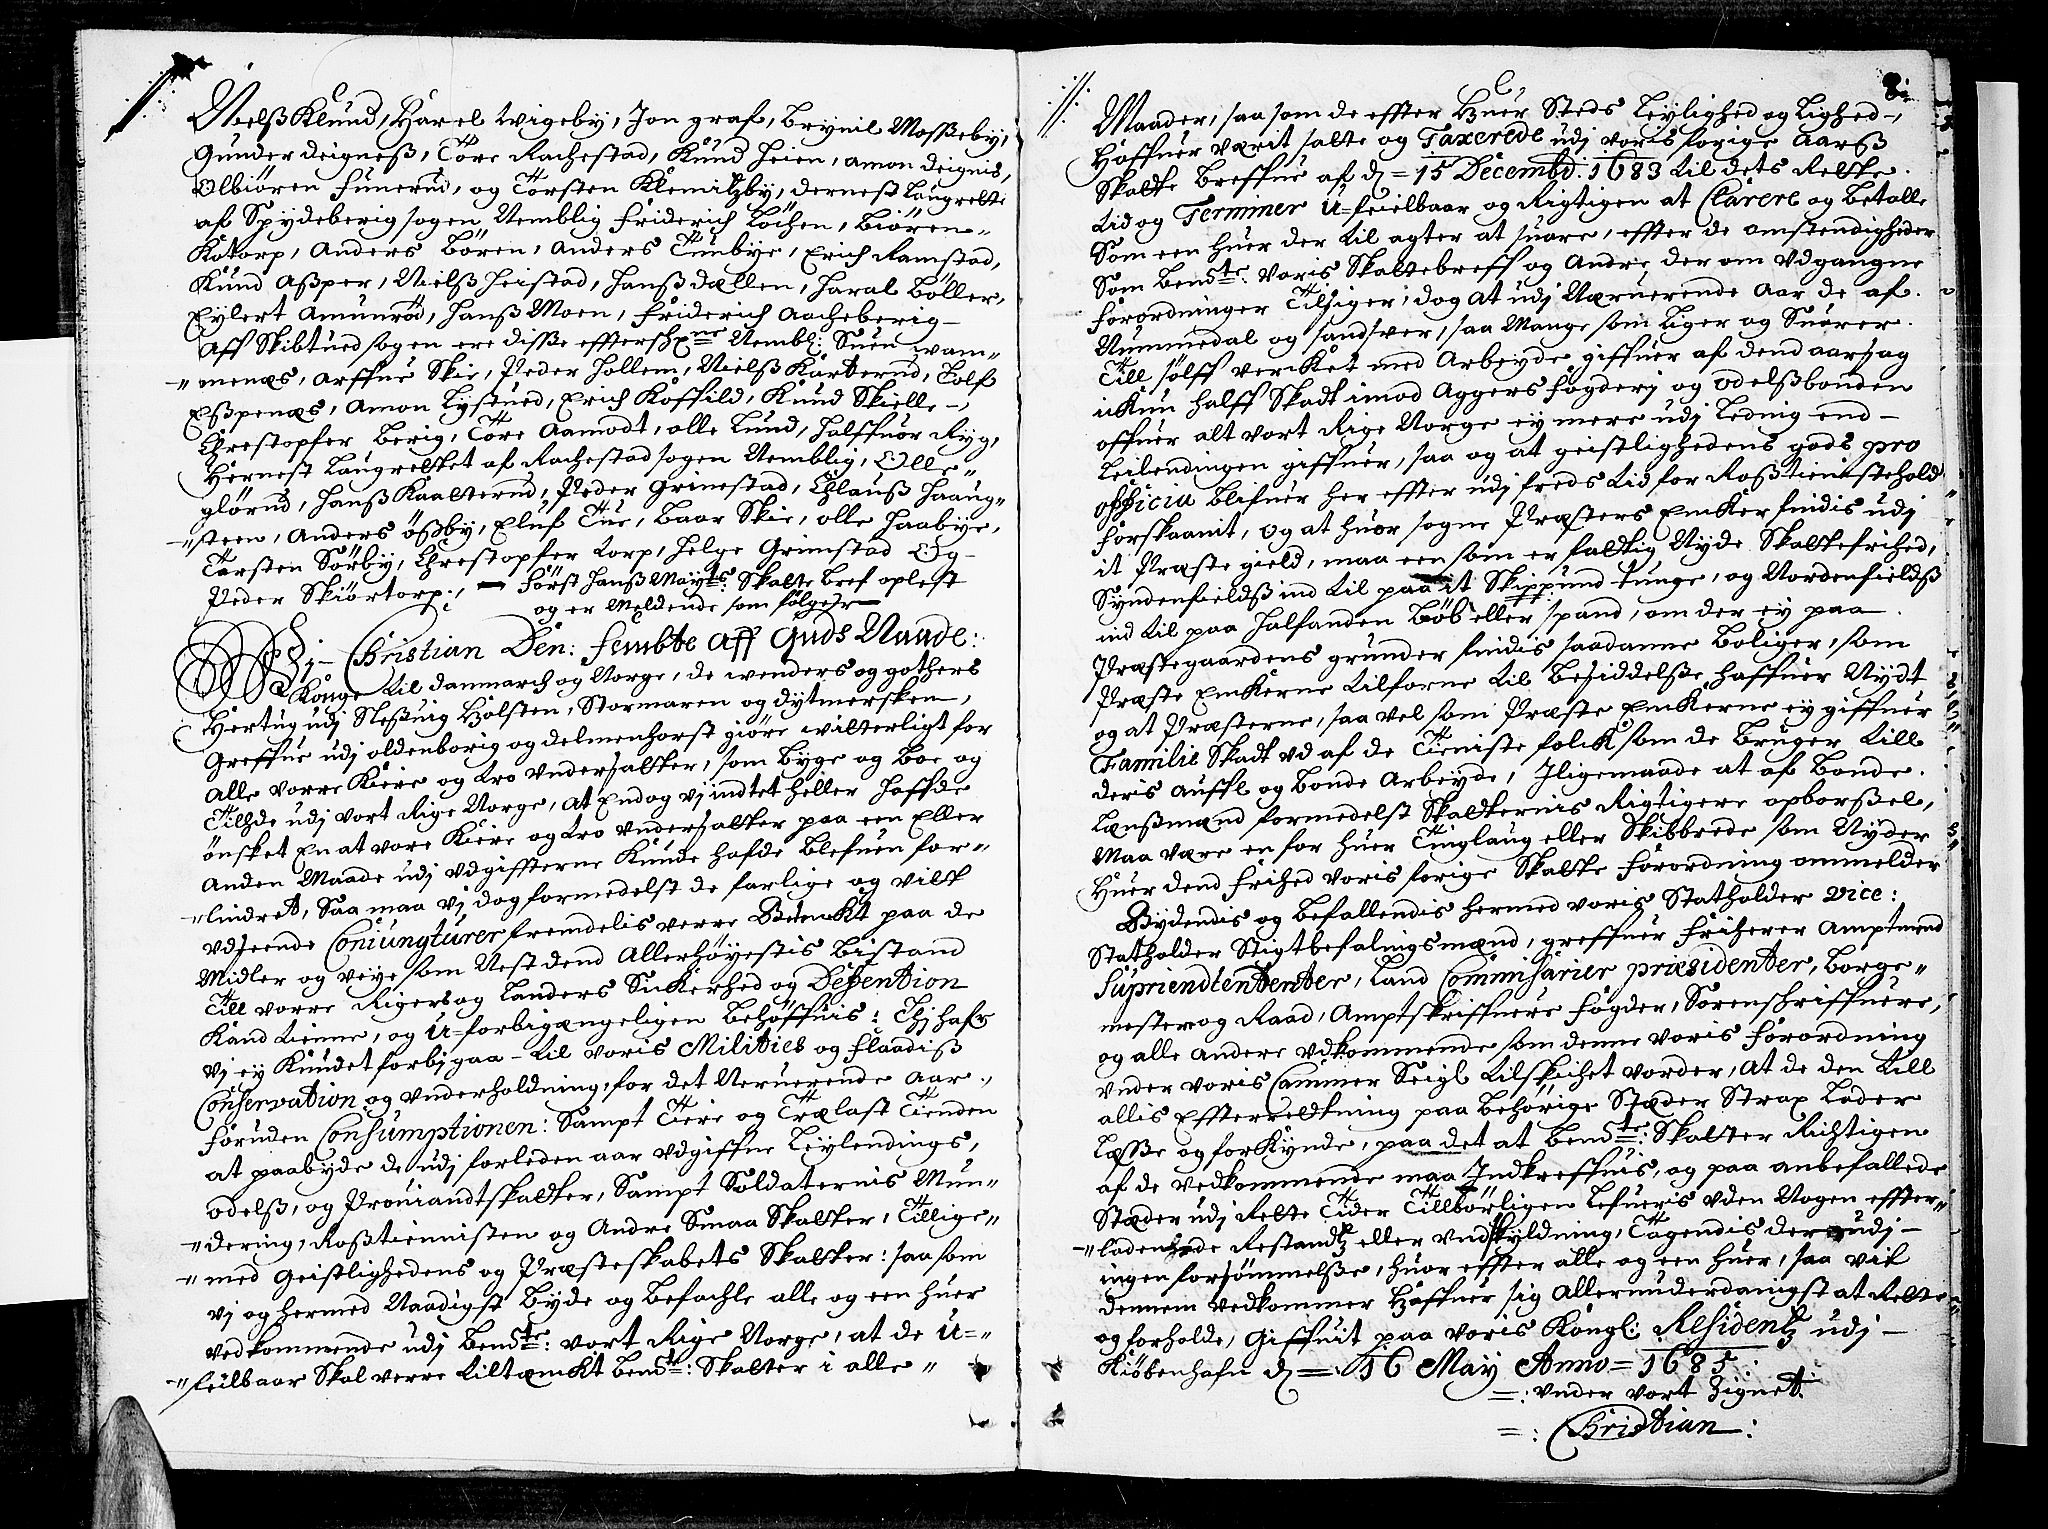 Nielß Klund, Harel Wigeby, Jon graf, Brynil Moßeby,
Gunder deigneß, Tore Rachestad, Knud Heien, Amon deignis,
Olbiören Funerud, og Torsten Klemitzby, dernest Laugrette
af Spydeberig sogen Nemblig Friderich Löchen, Biören
Kotorp, Anders Bören, Anders Tunbye, Erich Ramstad,
Knud Aßper, Nielß Heistad, Hanß Dallen, Haral Böller,
Eylert Amunröd, Hanß Moen, Friderich Aacheberig
Aff Skibtued sogen ere disse effterschne Nembl: Suen Wam-
menæs, Arffue Skie, Peder Hollem, Nielß Karterud, Tolf
Eßpenæs, Amon Lystued, Erich Koffild, Knud Skielle,
Chrestopfer Berig, Tore Aamodt, olle Lund, Halffuor Ryg,
Hernest Laugrettet af Rachestad sogen Nemblig, Olle
glörud, Hanß Kaalterud, Peder Grimestad, Clauß Haaug-
steen, Anders ößby, Eluf Tue, Baar Skie, olle Haabye,
Torsten Sörby, Chrestopfer Torp, Helge Grimstad Og
Peder Skiörtorp: Först Hanß Mayts: Skatte bref oplest
og er Meldende som fölger
Vj Christian Den: femte Aff Guds Naade:
Konge til danmarch og Norge, de wenders og gothers
Hertug udj Sleßuig Holsten, Stormaren og dytmersken,
Greffue udj oldenborig og delmenhorst giöre witterligt for
Alle vorre Kiere og tro vndersatter, som byge og Boe og
Tilhde udj vort Rige Norge, At Endog vj indtet heller Haffde
önsket En at vore Kiere og tro vndersatter paa een Eller
Anden Maade udj vdgifterne Kunde hafde blefuen for-
lindret, Saa maa vj dog formedelst de farlige og vilt
vdseende Coniungturer fremdelis verre Betenckt paa de
Midler og veye som Nest dend Allerhöyestis bistand
Till vorre Rigers og Landers Sickerhed og Defention
Kand tienne, og U-forbigængeligen behöffuis: Thj hafr
vj ey Kundet forbj gaa til voris Milities og Flaadiß
Conservation og vnderholdning, for det Neruerende Aar,
Foruden Consumptionen: Sampt Tiere og Trælast Tienden
at paabyde de udj forleden aar vdgiffne Leylendings,
odelß, og Proviandtskatter, Sampt Soldaternis Mun-
dering, Roßtiennisten og Andre Smaa Skatter, Tillige
med Geistlighedens og Præsteskabets Skatter: saa som
vj og hermed Naadigst byde og befachle alle og een huer
vedkommende udj bemdte: vort Rige Norge, at de U-
feilbaar Skal verre tiltænckt bemdte: Skatter i alle
8
Maader, saa som de effter Huer Steds Leylighed og Lighed,
Haffuer værit satte og Taxerede udj voris forige Aarß
Skatte breffue af d = 15 Decembr: 1683 til dets Rette
tid og Terminer U-feilbaar og Rigtigen at Clarere og betalle
Som een Huer der til agter at suare, effter de omstendigheder
Som bemdte: voris Skattebreff og Andre der om vdgangne
Forordninger Tilsiger; dog at udj Nærverende Aar de af
Nummedal og Sandsver, saa Mange som Liger og Suarer
Till sölff vercket med Arbeyde giffuer af dend aarsag
ickun halff Skadt imod Aggers fögderj og odelßbonden
offuer alt vort Rige Norge ey mere udj Leding end
Leilendingen giffuer, saa og at geistlighedens gods pro
officia blifuer her effter udj freds tid for Roßtieniste hold
forskaanit, og at huor sogne Præsters Encker findis udj
it Præste gield, maa een som er fattig Nyde Skattefrihed,
Syndenfieldß ind til paa it Skippund tunge, og Nordenfieldß
ind til paa Halfanden böb eller spand, om der ey paa
Præstegaardens grunder findis saadanne boliger, som
Præste Enckerne tilforne til besiddelße haffuer Nydt
og at Præsterne, saa vel som Præste Enckerne ey giffuer
Familie Skadt vd af de Tieniste folck som de bruger till
deris Auffl og bonde Arbeyde, Iligemaade at af bonde
Lænßmænd formedelst Skatternis Rigtigere opborßel,
Maa være en for Huer Tinglaug eller Skibbrede som Nyder
Huer dend frihed voris forige Skatte forordning ommelder
Bydendis og befallendis hermed voris Statholder vice:
Statholder Stigtbefalingsmænd, greffuer friherer Amptmend
Supriendtententer, Land Commisarier præsidenter, Borge-
mester og Raad, Amptskriffuere Fögder, Sorenschriffuere,
og alle Andere vdkommende som denne voris forordning
vnder voris Cammer Seigl tilskichet vorder, At de den till
allis Effterrettning paa behörige Stæder Strax Lader
Læsße og forkynde, paa det at bemdte: Skatter Richtigen
af de vedkommende maa Indkreffuis, og paa anbefallede
Stæder udj Rette Tider Tillbörligen Lefueris vden Nogen effter-
ladenhede Restandtz eller vndskyldning, Tagendis der udj
ingen forsömmelße, Huor effter alle og een Huer, saa vit
dennem vedkommer Haffuer sig Allerunderdanigst at Rette
og forholde, Giffuit paa voris Kongl: Residentz udj
Kiöbenhafn d = 16 May Anno = 1685:
=: vnder vort Zignet.
=: Christian: